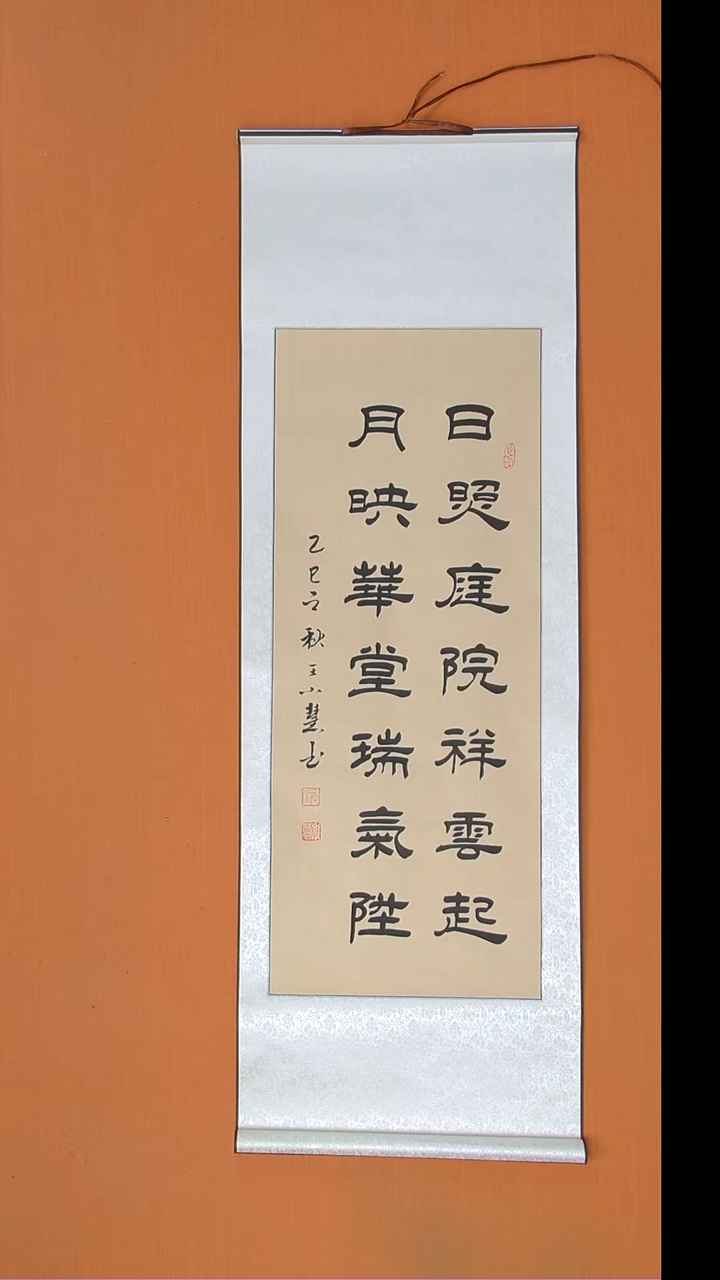 日照庭院祥雲起
月映華堂瑞氣陞
乙巳之秋王小慧書